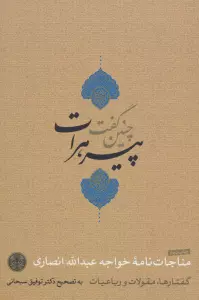 چنین گفت
پیر هرات
مناجات‌نامهٔ خواجه عبدالله انصاری
گفتارها، مقولات و رباعیات
به تصحیح دکتر توفیق سبحانی